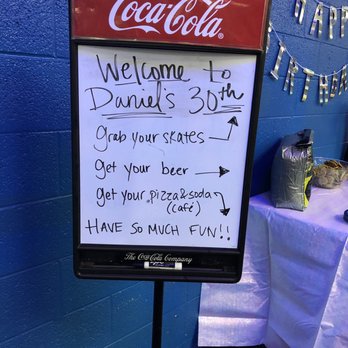 Coca-Cola
Welcome to
Daniel's 30th
grab your skates
get your beer
get your pizza & soda
(café)
HAVE SO MUCH FUN!!
The Coca-Cola Company
HAPP
BIRTHDAY